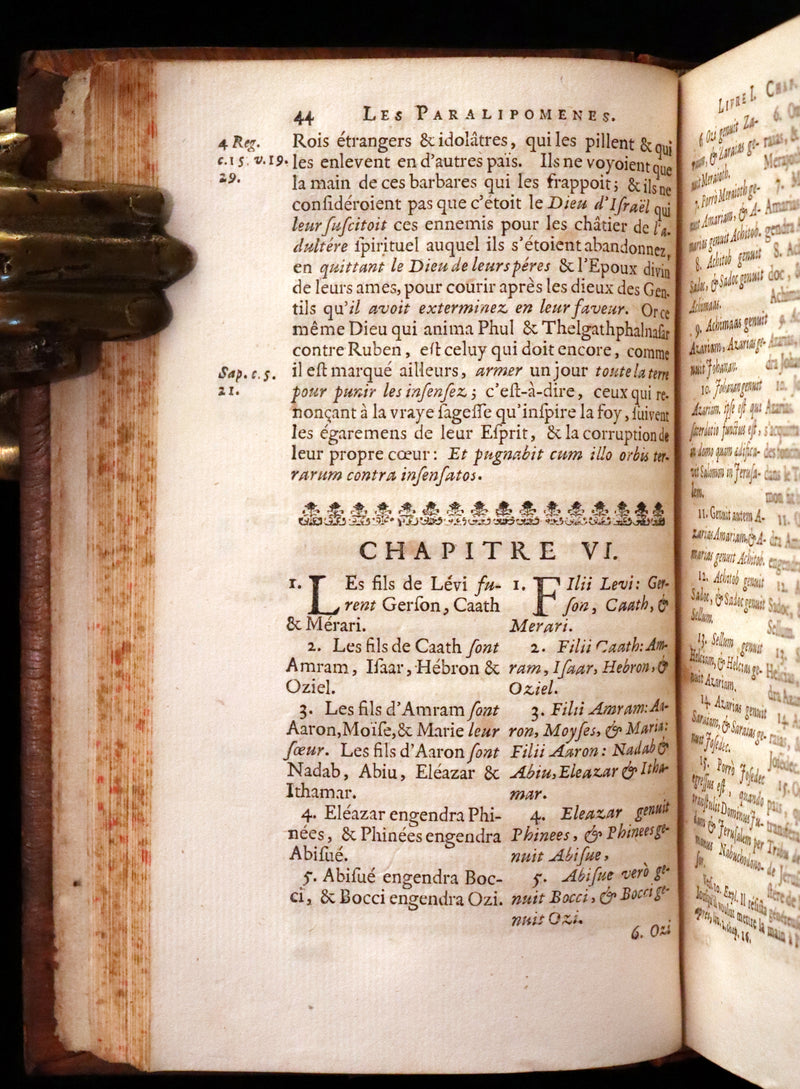 44 LES PARALIPOMENES.
4 Reg.
c. 15. v. 19.
29.
Rois étrangers & idolâtres, qui les pillent & qui
les enlevent en d'autres païs. Ils ne voyoient que
la main de ces barbares qui les frappoit; & ils ne
conſidéroient pas que c'étoit le Dieu d'Iſraël qui
leur ſuſcitoit ces ennemis pour les châtier de l'a-
dultére ſpirituel auquel ils s'étoient abandonnez,
en quittant le Dieu de leurs péres & l'Epoux divin
de leurs ames, pour courir après les dieux des Gen-
tils qu'il avoit exterminez en leur faveur. Or ce
même Dieu qui anima Phul & Thelgathphalnaſar
contre Ruben, eſt celuy qui doit encore, comme
Sap. c. 5.
21.
il eſt marqué ailleurs, armer un jour toute la terre
pour punir les inſenſez; c'eſt-à-dire, ceux qui re-
nonçant à la vraye ſageſſe qu'inſpire la foy, ſuivent
les égaremens de leur Eſprit, & la corruption de
leur propre cœur: Et pugnabit cum illo orbis ter-
rarum contra inſenſatos.
CHAPITRE VI.
1. LEs fils de Lévi fu-
rent Gerſon, Caath
& Mérari.
2. Les fils de Caath ſont
Amram, Iſaar, Hébron &
Oziel.
3. Les fils d'Amram ſont
Aaron, Moïſe, & Marie leur
ſœur. Les fils d'Aaron ſont
Nadab, Abiu, Eléazar &
Ithamar.
4. Eléazar engendra Phi-
nées, & Phinées engendra
Abiſué.
5. Abiſué engendra Boc-
ci, & Bocci engendra Ozi.
1. FIlii Levi: Ger-
ſon, Caath, &
Merari.
2. Filii Caath: Am-
ram, Iſaar, Hebron, &
Oziel.
3. Filii Amram: Aa-
ron, Moyſes, & Maria:
Filii Aaron: Nadab &
Abiu, Eleazar & Itha-
mar.
4. Eleazar genuit
Phinees, & Phinees ge-
nuit Abiſue,
5. Abiſue verò ge-
nuit Bocci, & Bocci ge-
nuit Ozi.
6. Ozi
LIVRE I. CHAP.
6 Ozi genuit Za-
raias, & Zaraias ge-
nuit Meraioth.
7. Porrò Meraioth ge-
nuit Amariam, & A-
marias genuit Achitob.
8. Achitob genuit
Sadoc, & Sadoc genuit
Achimaas.
9. Achimaas genuit
Azariam, Azarias ge-
nuit Johanan.
10. Johanan genuit
Azariam. ipſe eſt qui
ſacerdotio functus eſt,
in domo quam ædifica-
vit Salomon in Jeruſa-
lem.
11. Genuit autem A-
zarias Amariam, & A-
marias genuit Achitob.
12. Achitob genuit
Sadoc, & Sadoc genuit
Sellum.
13. Sellum genuit
Helciam, & Helcias ge-
nuit Azariam.
14. Azarias genuit
Saraiam, & Saraias ge-
nuit Joſedec.
15. Porrò Joſedec
egreſſus eſt, quando
tranſtulit Dominus Ju-
dam & Jeruſalem per
manus Nabuchodono-
ſor.